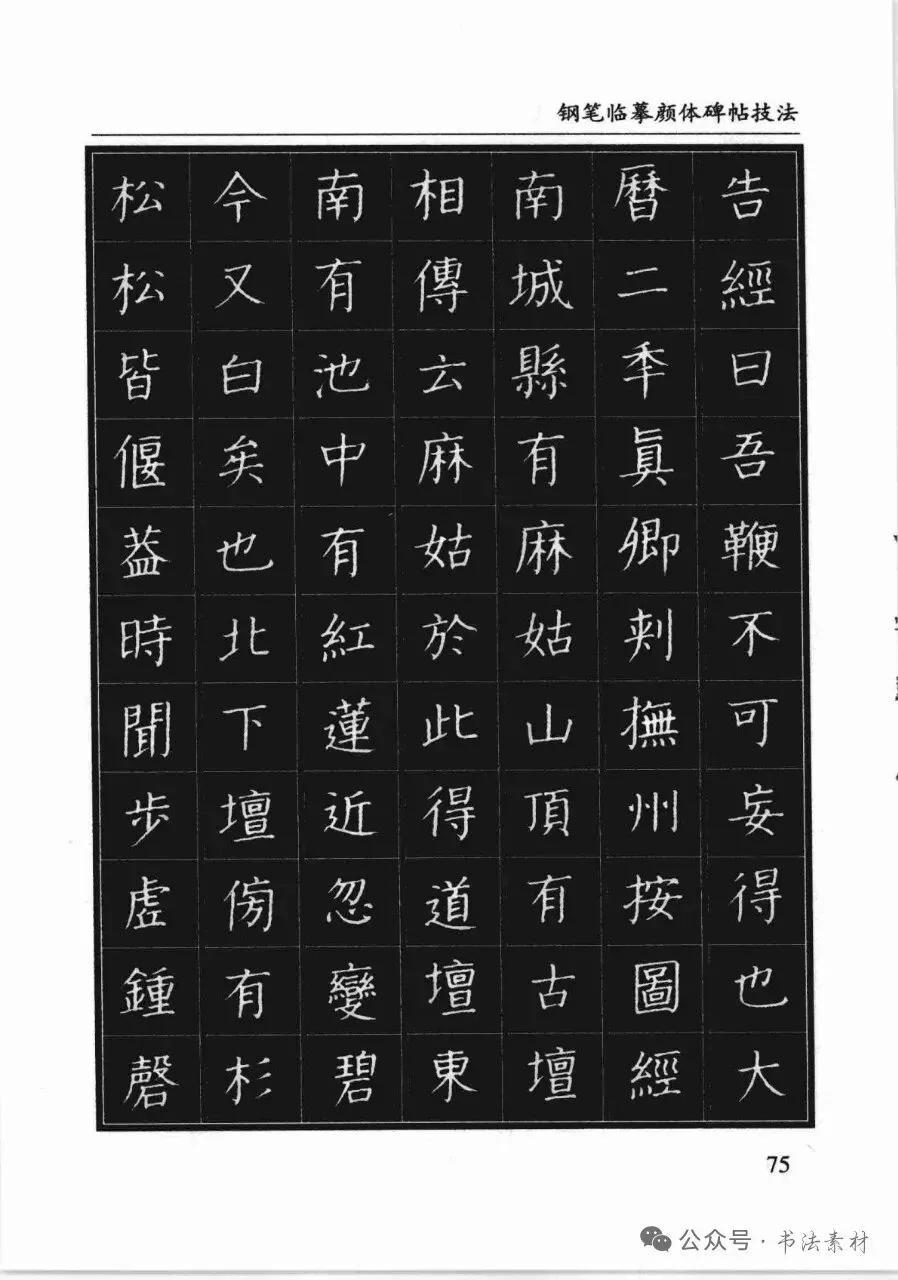 钢笔临摹颜体碑帖技法
告經曰吾鞭不可妄得也大
曆二秊真卿刾撫州按圖經
南城縣有麻姑山頂有古壇
相傳云麻姑於此得道壇東
南有池中有紅蓮近忽變碧
今又白矣也北下壇傍有杉
松松皆偃葢時聞步虛鍾磬
75
公众号·书法素材